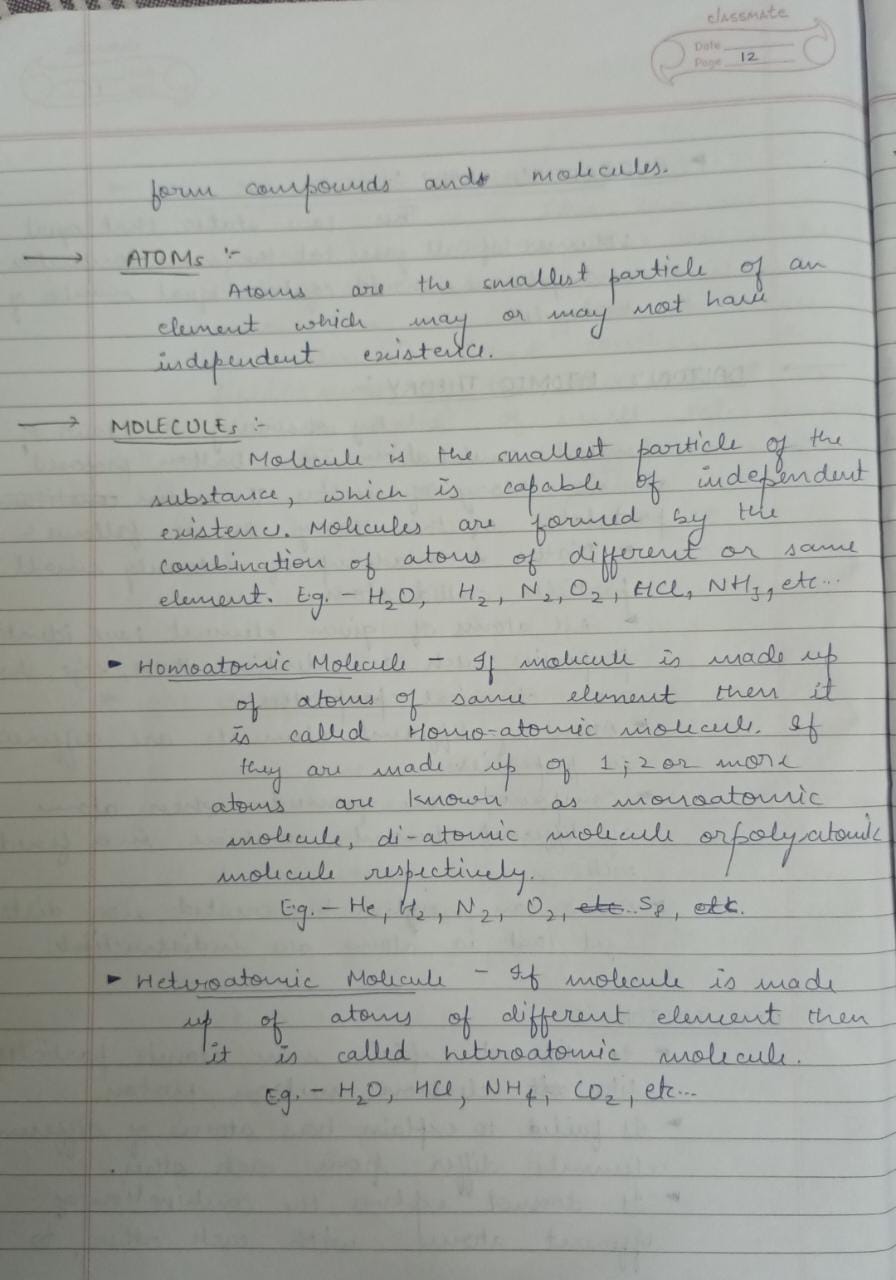 classmate
Date
Page 12
form compounds and molecules.
→ ATOMs :-
Atoms are the smallest particle of an
element which may or may not have
independent existence.
→ MOLECULEs :-
Molecule is the smallest particle of the
substance, which is capable of independent
existenc. Molecules are formed by the
combination of atoms of different or same
element. Eg. - H₂O, H₂, N₂, O₂, HCl, NH₃, etc...
‣ Homoatomic Molecule - If molecule is made up
of atoms of same element then it
is called Homo-atomic molecule. If
they are made up of 1; 2 or more
atoms are known as monoatomic
molecule, di-atomic molecule or polyatomic
molecule respectively.
Eg. - He, H₂, N₂, O₂, etc.. S₈, etc.
‣ Heteroatomic Molecule - If molecule is made
up of atoms of different element then
it is called heteroatomic molecule.
Eg. - H₂O, HCl, NH₄, CO₂, etc...